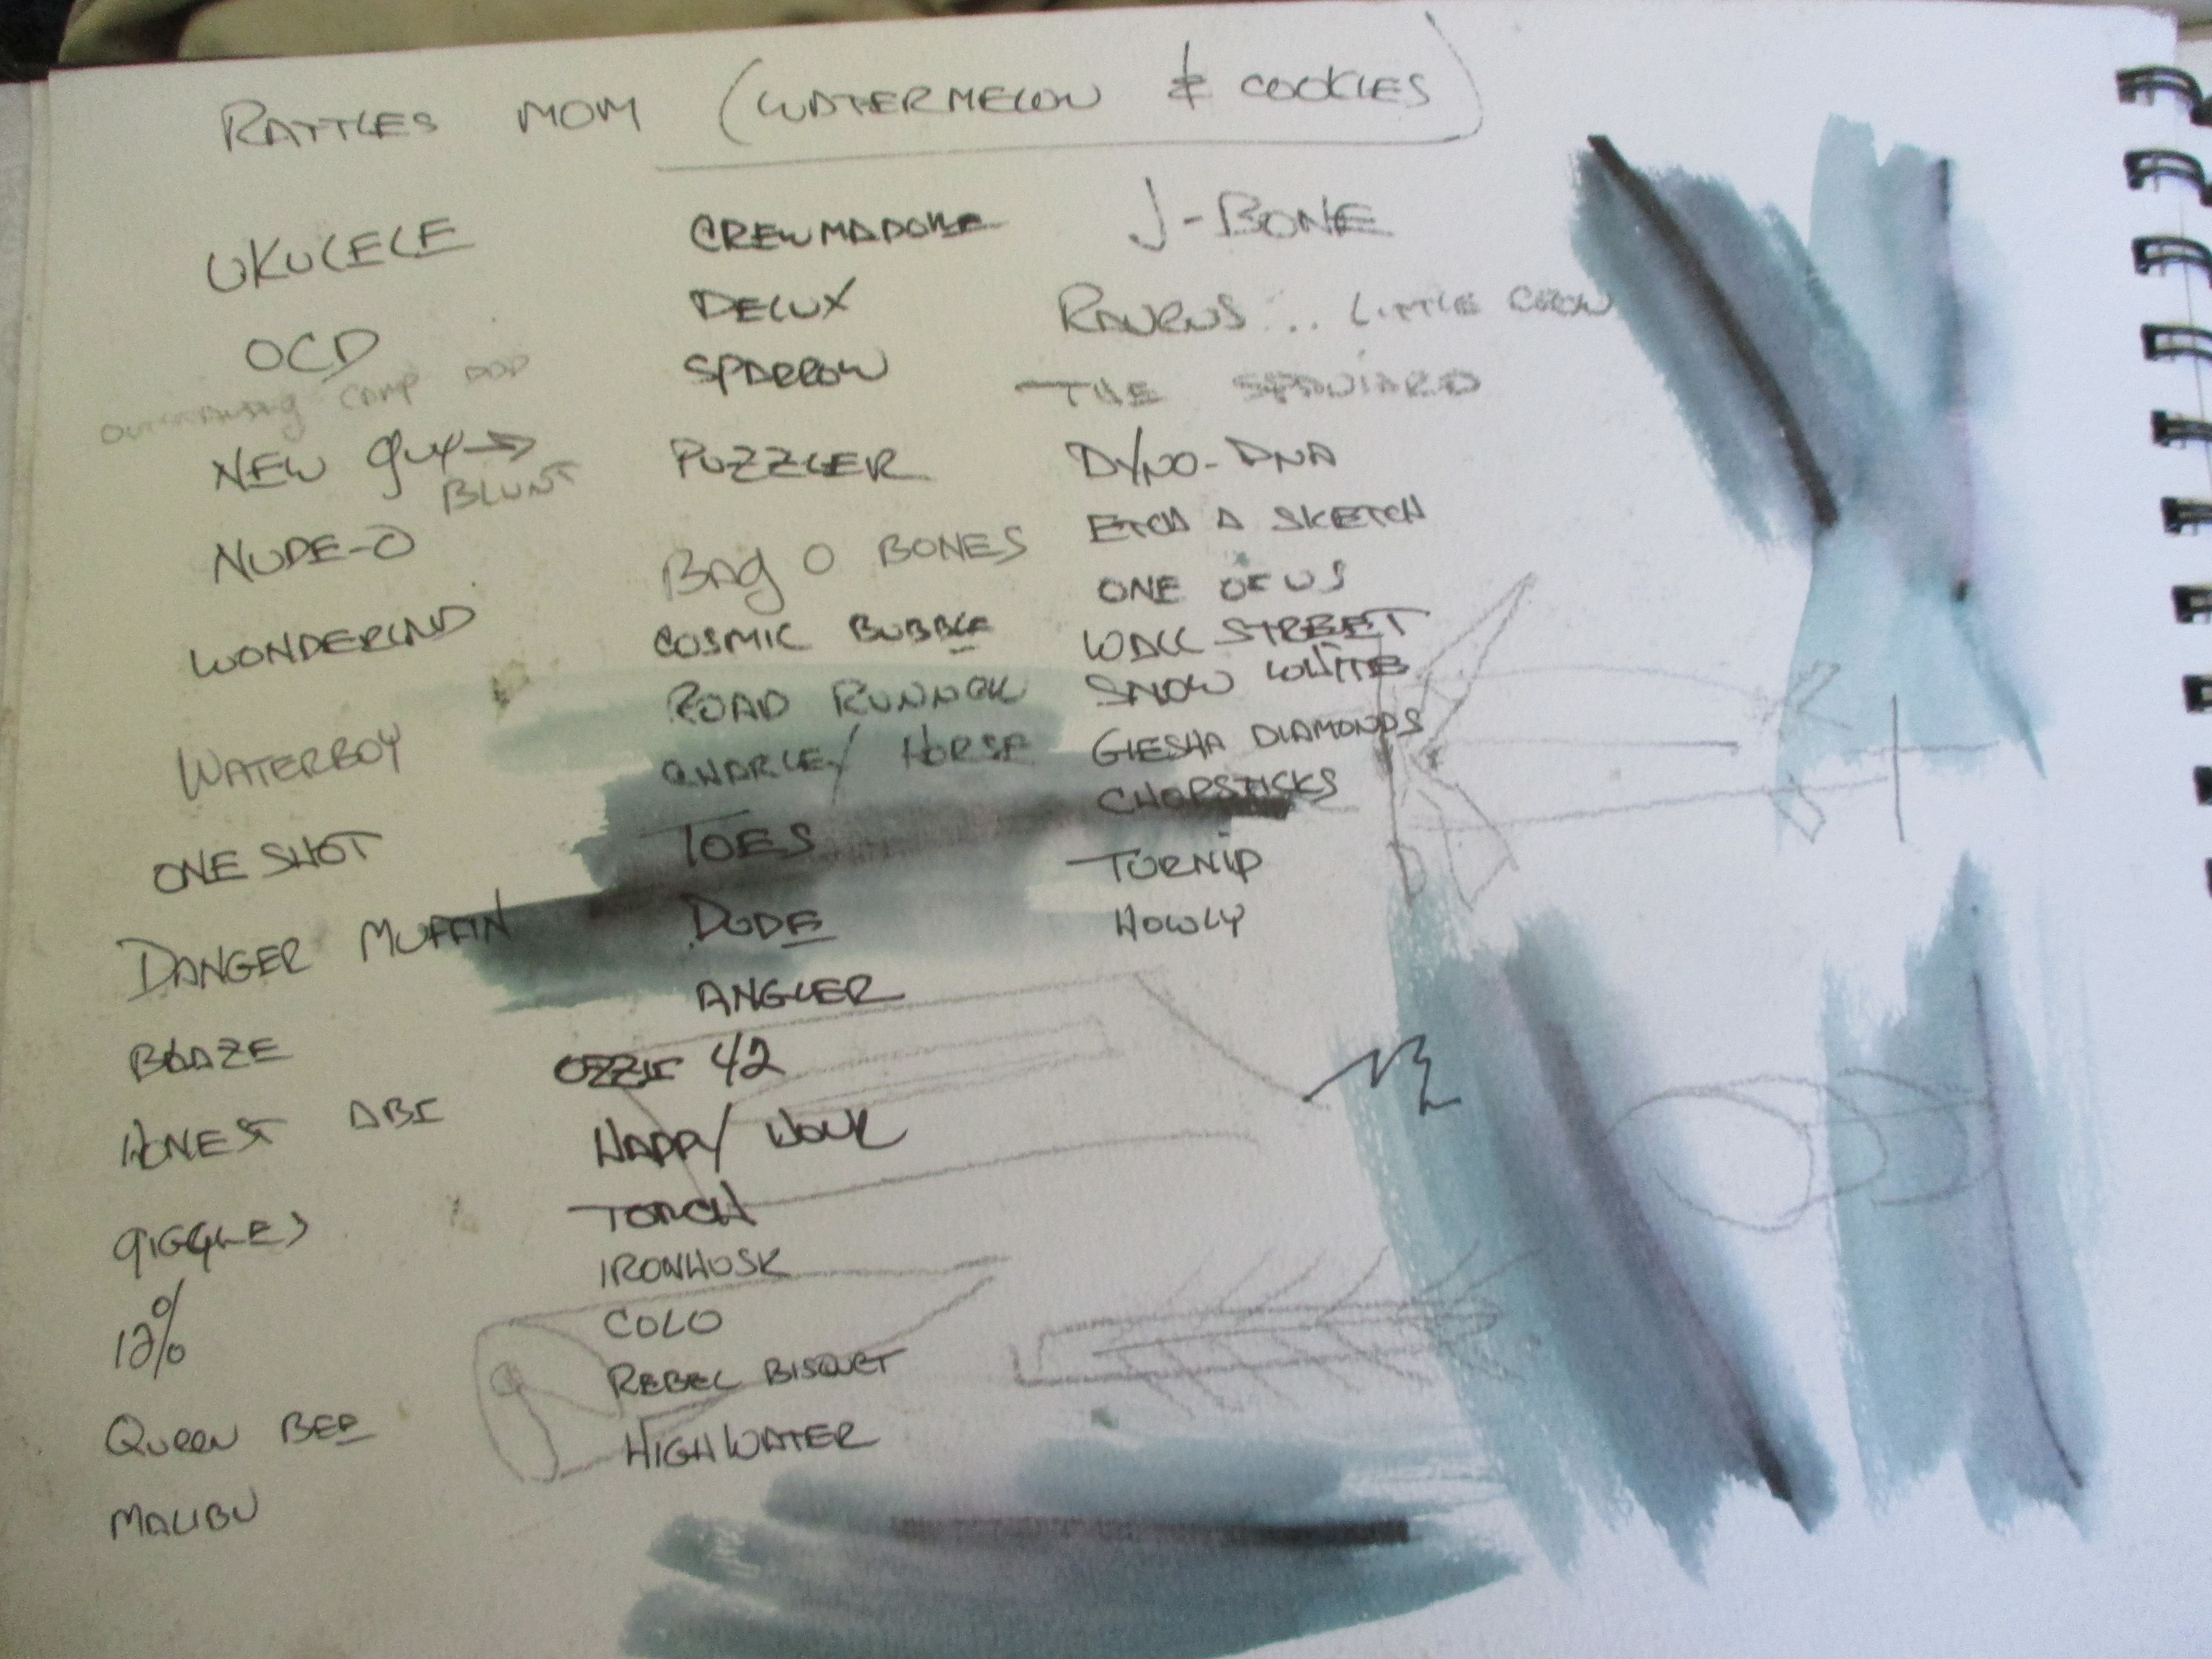 RATTLES MOM (WATERMELON & COOKIES)
UKULELE
OCD
CAMP DOD
NEW guy →
BLUNT
NUDE-O
WONDERLND
WATERBOY
ONE SHOT
DANGER MUFFIN
BLAZE
HONEST ABE
GIGGLES
12%
QUEEN BEE
MALIBU
DELUX
SPARROW
PUZZLER
BAg O BONES
COSMIC BUBBLE
ROAD RUNNER
CHARLEY HORSE
TOES
DUDE
ANGLER
OZZIE 42
HAPPY HOUR
TORCH
IRONHUSK
COLO
REBEL BISQUET
HIGHWATER
J-BONE
RAVENS... LITTLE CROW
THE SPANIARD
DYNO-DNA
ETCH A SKETCH
ONE OF US
WALL STREET
SNOW WHITE
GIESHA DIAMONDS
CHOPSTICKS
TURNIP
HOWLY